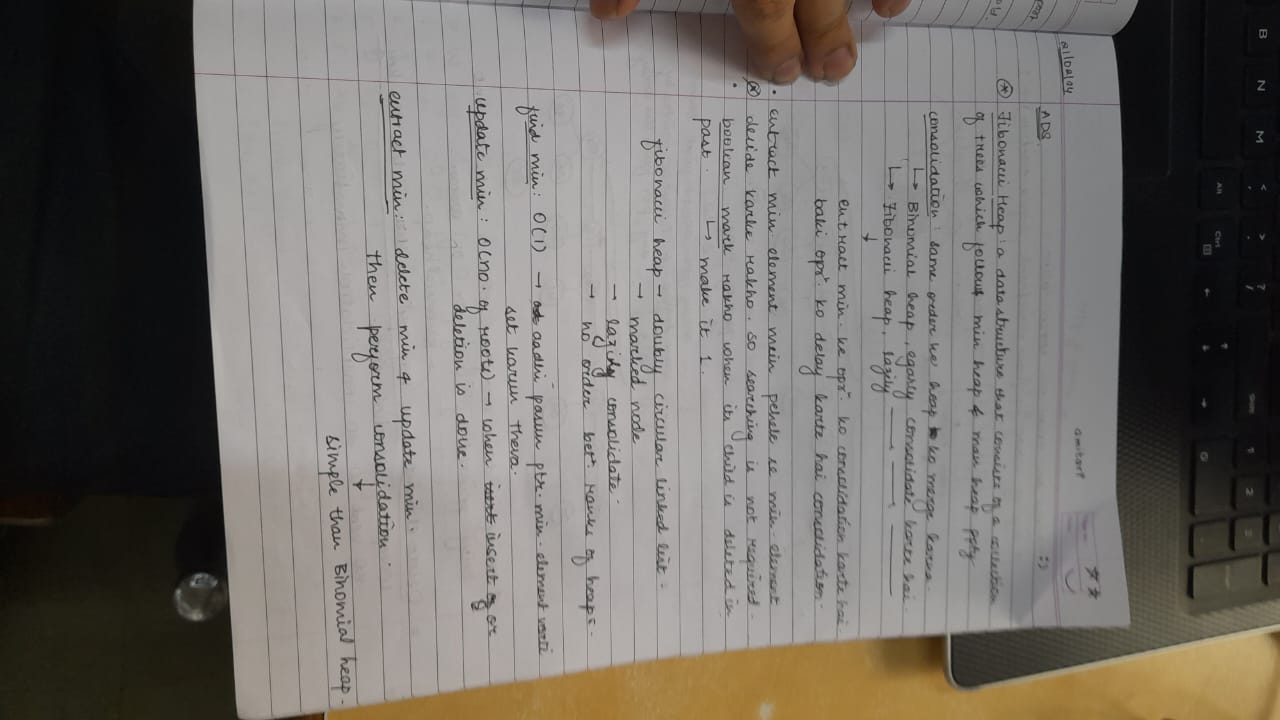 B N M < , > . ? / Shift 1 2 3
Alt Ctrl
amitort
21/02/24
ADS
:)
* Fibonacci Heap : a data structure that consists of a collection
of trees which follows min heap & max heap ppty
consolidation : same order ke heap ko merge karna.
↳ Binomial heap, egarly consolidate karte hai.
↳ Fibonacci heap, lazily —— —— ——
↓
extract min. ke oprn. ko consolidation karte hai.
baki oprn. ko delay karte hai consolidation.
• extract min element mein pehele se min. element
* decide karke rakho. so searching is not required.
• boolean mark rakho when its child is deleted in
past. ↳ make it 1.
fibonacci heap → doubly circular linked list.
→ marked node
→ lazily consolidate.
→ no order betn. ranks of heaps.
find min : O(1) → aadhi pasun ptr. min. element varti
set karun theva.
update min : O(no. of roots) → when insert or
deletion is done.
extract min : delete min & update min.
then perform consolidation.
↓
simple than Binomial heap.